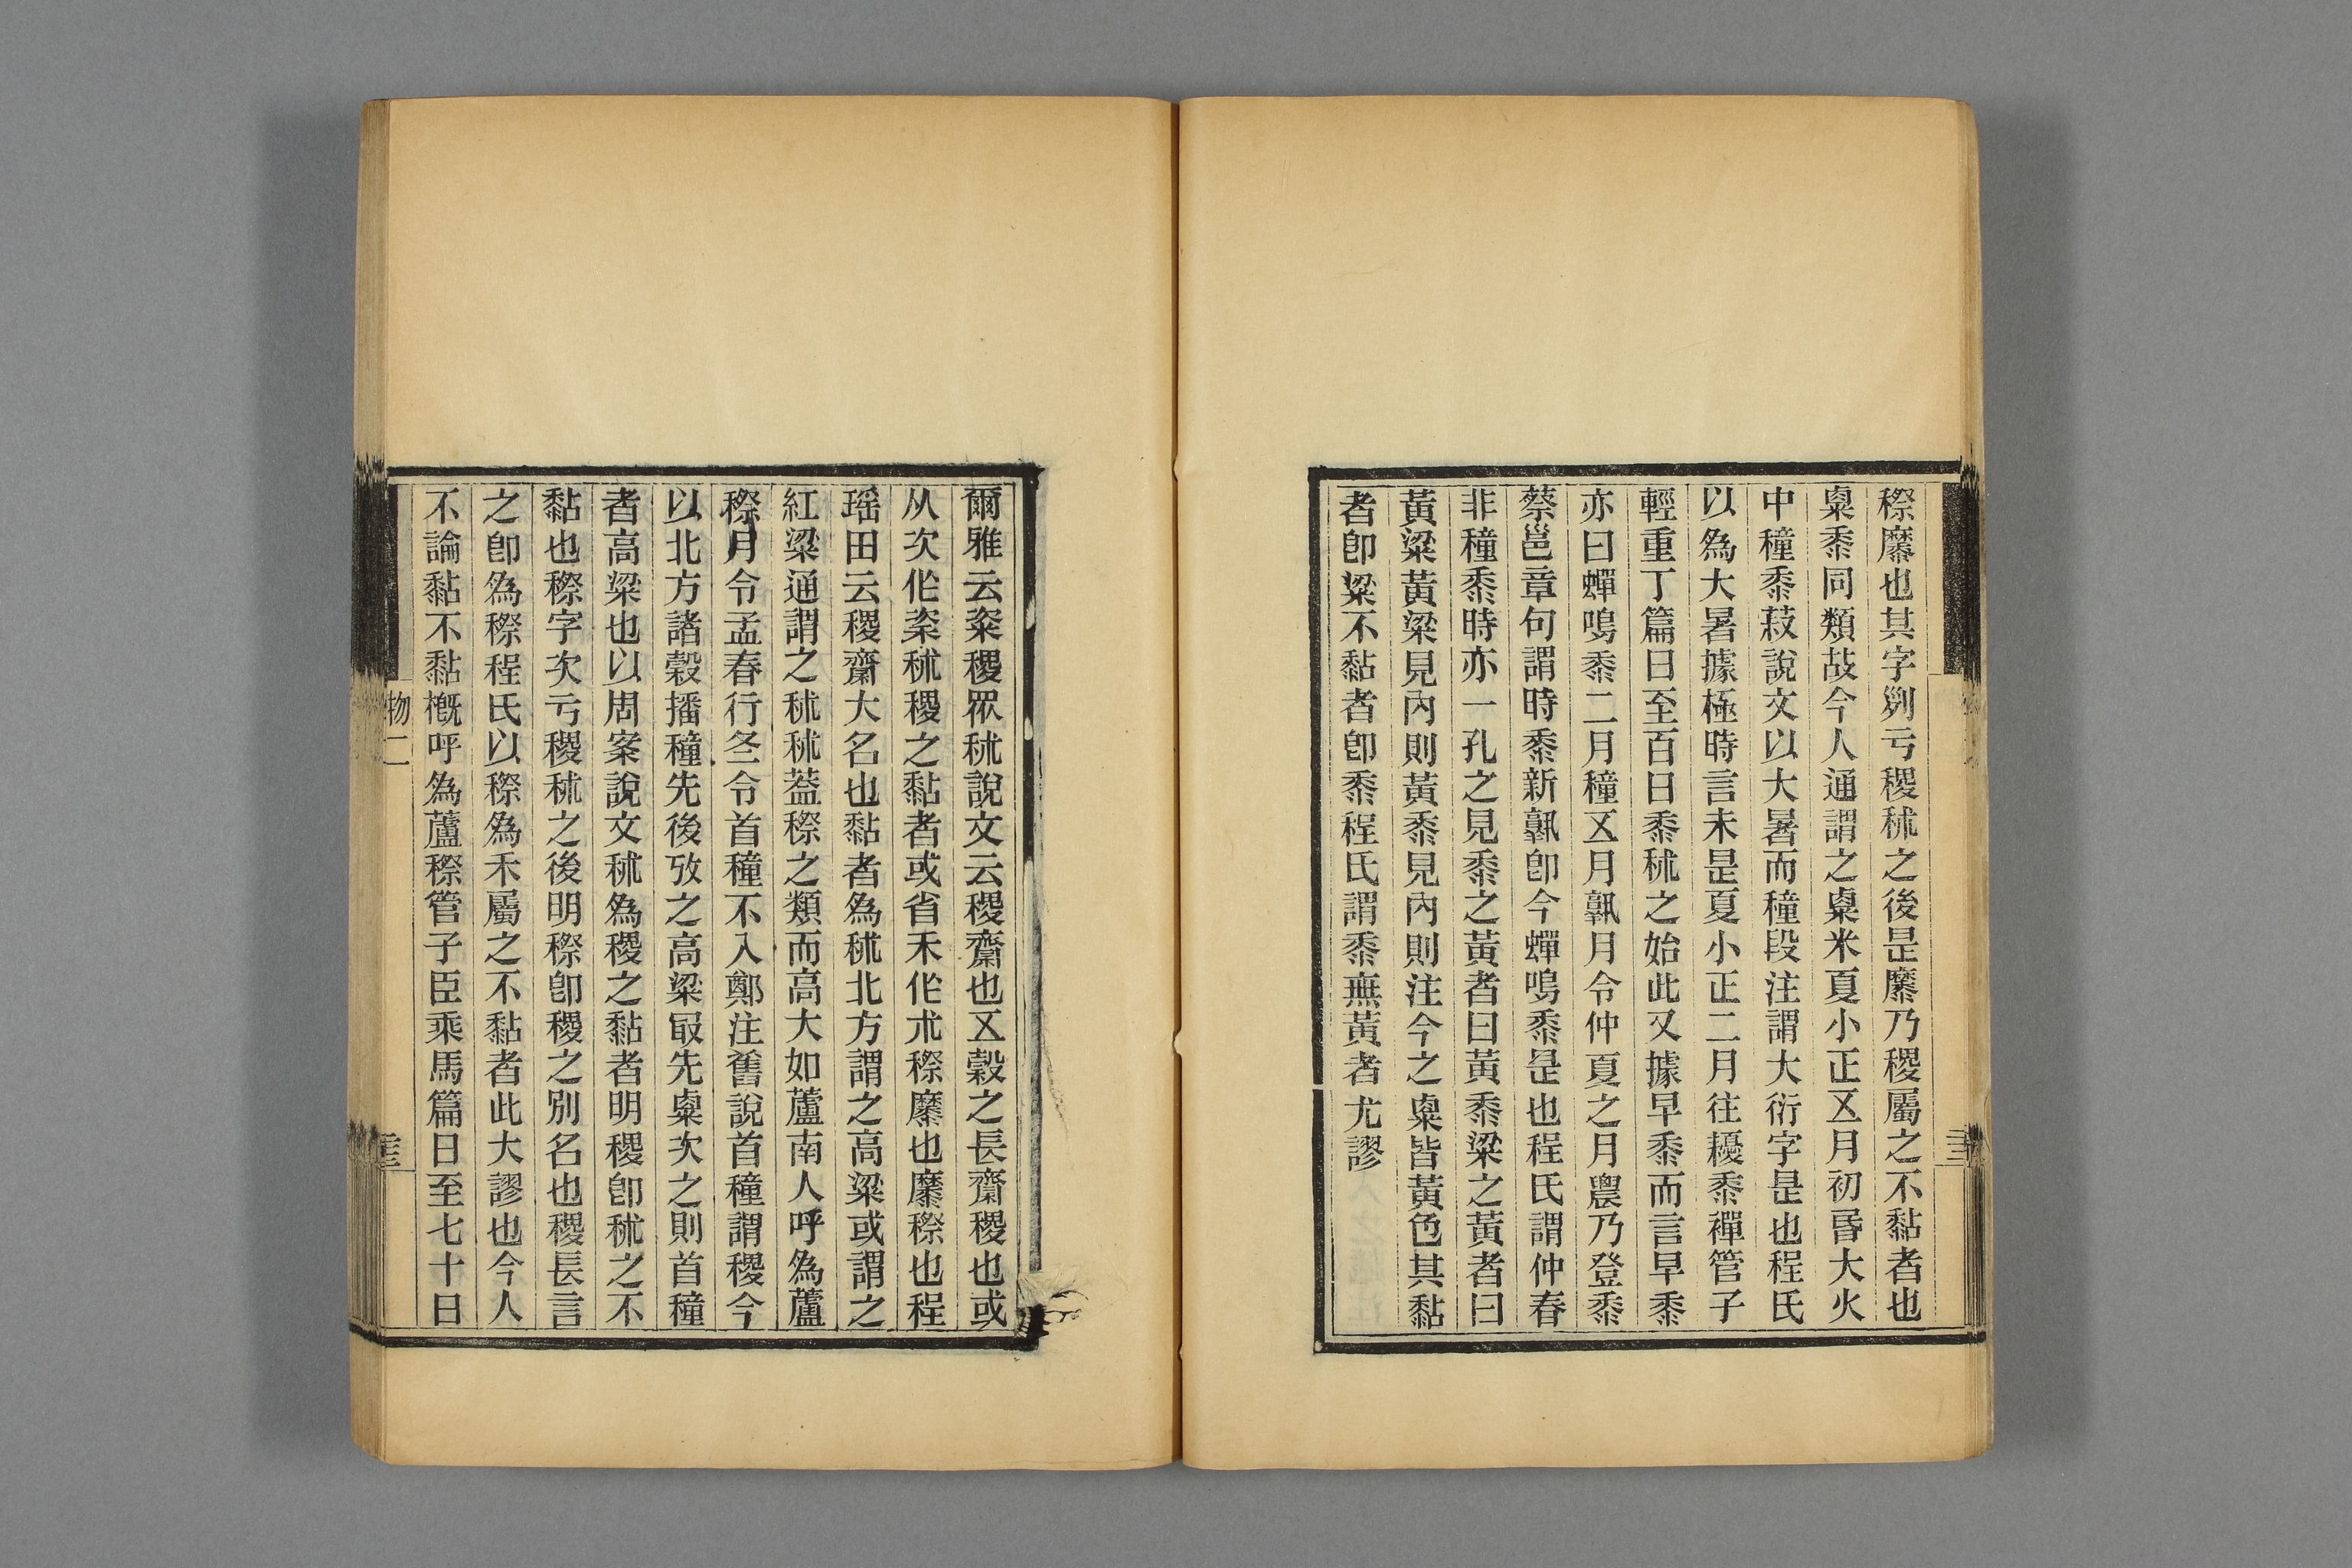 穄穈也其字𠛱亏稷秫之後是穈乃稷屬之不黏者也
㮚黍同類故今人通謂之㮚米夏小正㐅月初昏大火
中穜黍菽說文以大暑而穜段注謂大衍字是也程氏
以爲大暑據極時言未是夏小正二月往耰黍襌管子
輕重丁篇日至百日黍秫之始此又據早黍而言早黍
亦曰蟬鳴黍二月穜㐅月孰月令仲夏之月農乃登黍
蔡邕章句謂時黍新孰卽今蟬鳴黍是也程氏謂仲春
非穜黍時亦一孔之見黍之黃者曰黃黍粱之黃者曰
黃粱黃粱見內則黃黍見內則注今之㮚皆黃色其黏
者卽粱不黏者卽黍程氏謂黍無黃者尤謬
爾雅云粢稷眾秫說文云稷齋也㐅穀之長齋稷也或
从次作粢秫稷之黏者或省禾作朮穄穈也穈穄也程
瑶田云稷齋大名也黏者爲秫北方謂之高粱或謂之
紅粱通謂之秫秫蓋穄之類而高大如蘆南人呼爲蘆
穄月令孟春行冬令首穜不入鄭注舊說首穜謂稷今
以北方諸穀播穜先後攷之高粱㝡先㮚次之則首穜
者高粱也以周案說文秫爲稷之黏者明稷卽秫之不
黏也穄字次亏稷秫之後明穄卽稷之別名也稷長言
之卽爲穄程氏以穄爲禾屬之不黏者此大謬也今人
不論黏不黏槪呼爲蘆穄管子臣乘馬篇日至七十日
物二